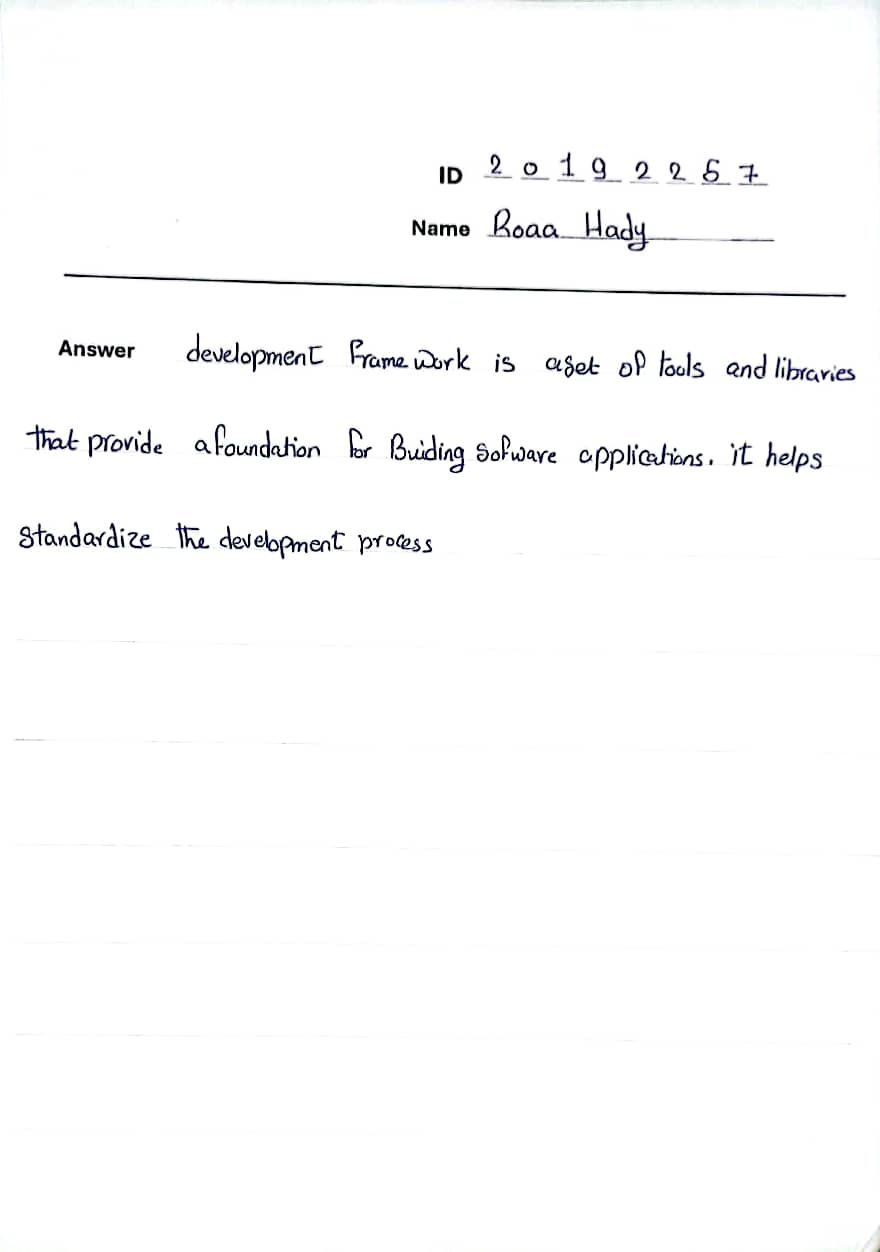 ID 2 0 1 9 2 2 6 7
Name Roaa Hady
Answer development framework is a set of tools and libraries
that provide a foundation for Buiding Sofware applications. it helps
Standardize the development process